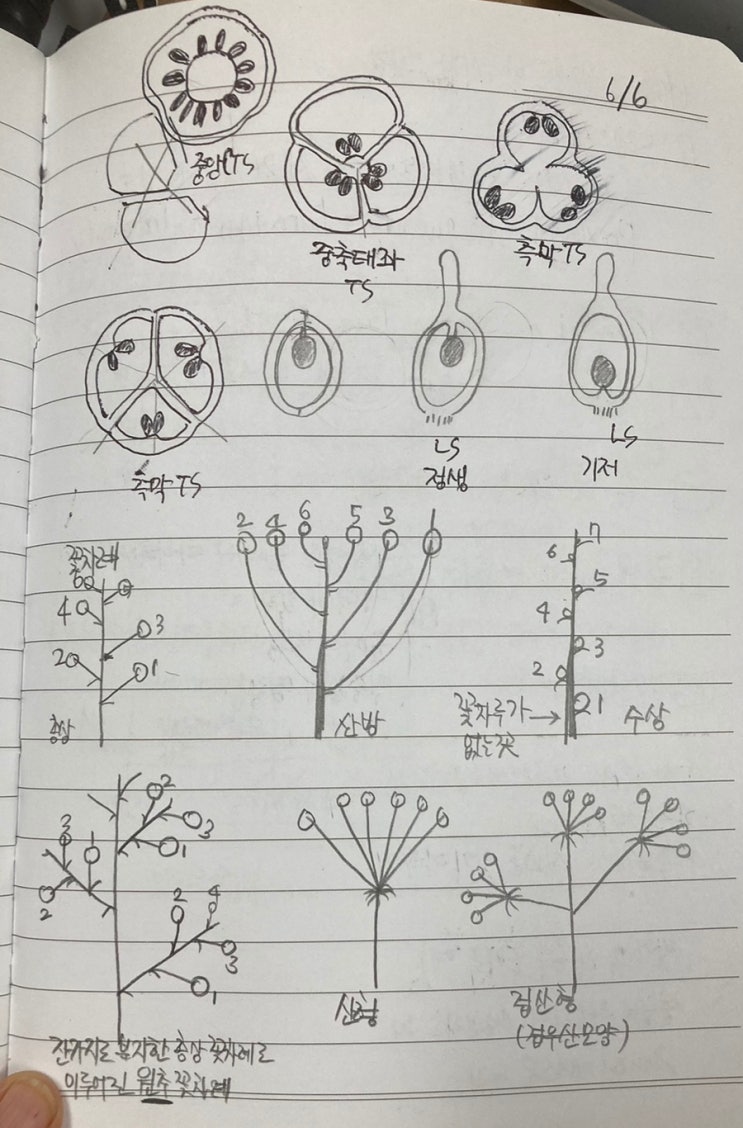 6/6
중앙 TS
중축태좌
TS
측막 TS
측막 TS
LS
정생
LS
기저
꽃차례
6
4
3
2
1
총상
2 4 6 5 3
산방
7
6
5
4
3
2
1
꽃자루가
없는 꽃
수상
2
3
1
3
2
2
4
3
1
잔가지로 분지한 총상 꽃차례로
이루어진 원추 꽃차례
산형
겹산형
(겹우산모양)